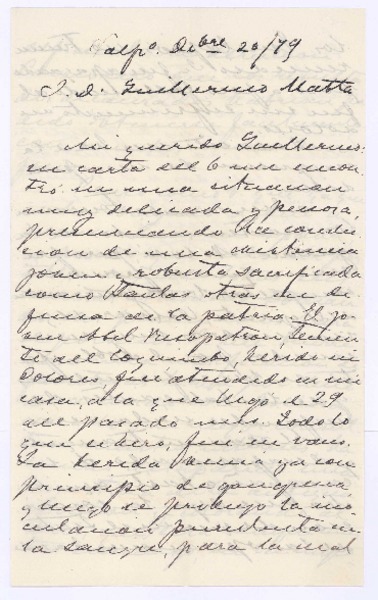 Valpo. Dibre 20/79
S. D. Guillermo Matta
Mi querido Guillermo:
tu carta del 6 me encon-
tró en una situacion
muy delicada y penosa,
presenciando la
cion de una existencia
joven y robusta sacrificada
como tantas otras en de-
fensa de la patria. El jo-
ven Abel Risopatron, tenien-
te del Coquimbo, herido en
Dolores, fué atendido en mi
casa, a la que llegó el 29
del pasado mes. Todo lo
que se hizo, fué en vano.
La herida venia ya con
principio de gangrena,
y luego se produjo la
purulenta en
la sangre, para la cual